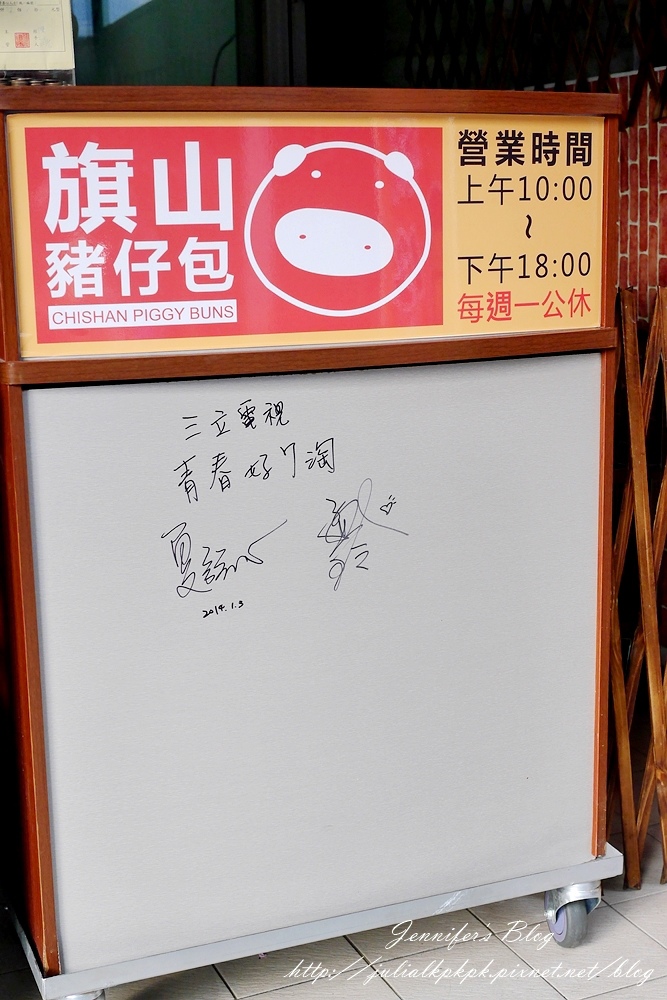 旗山
豬仔包
CHISHAN PIGGY BUNS
營業時間
上午10:00
~
下午18:00
每週一公休
三立電視
青春好ㄚ淘
2014.1.3
Jennifer's Blog
http://julialkpkpk.pixnet.net/blog